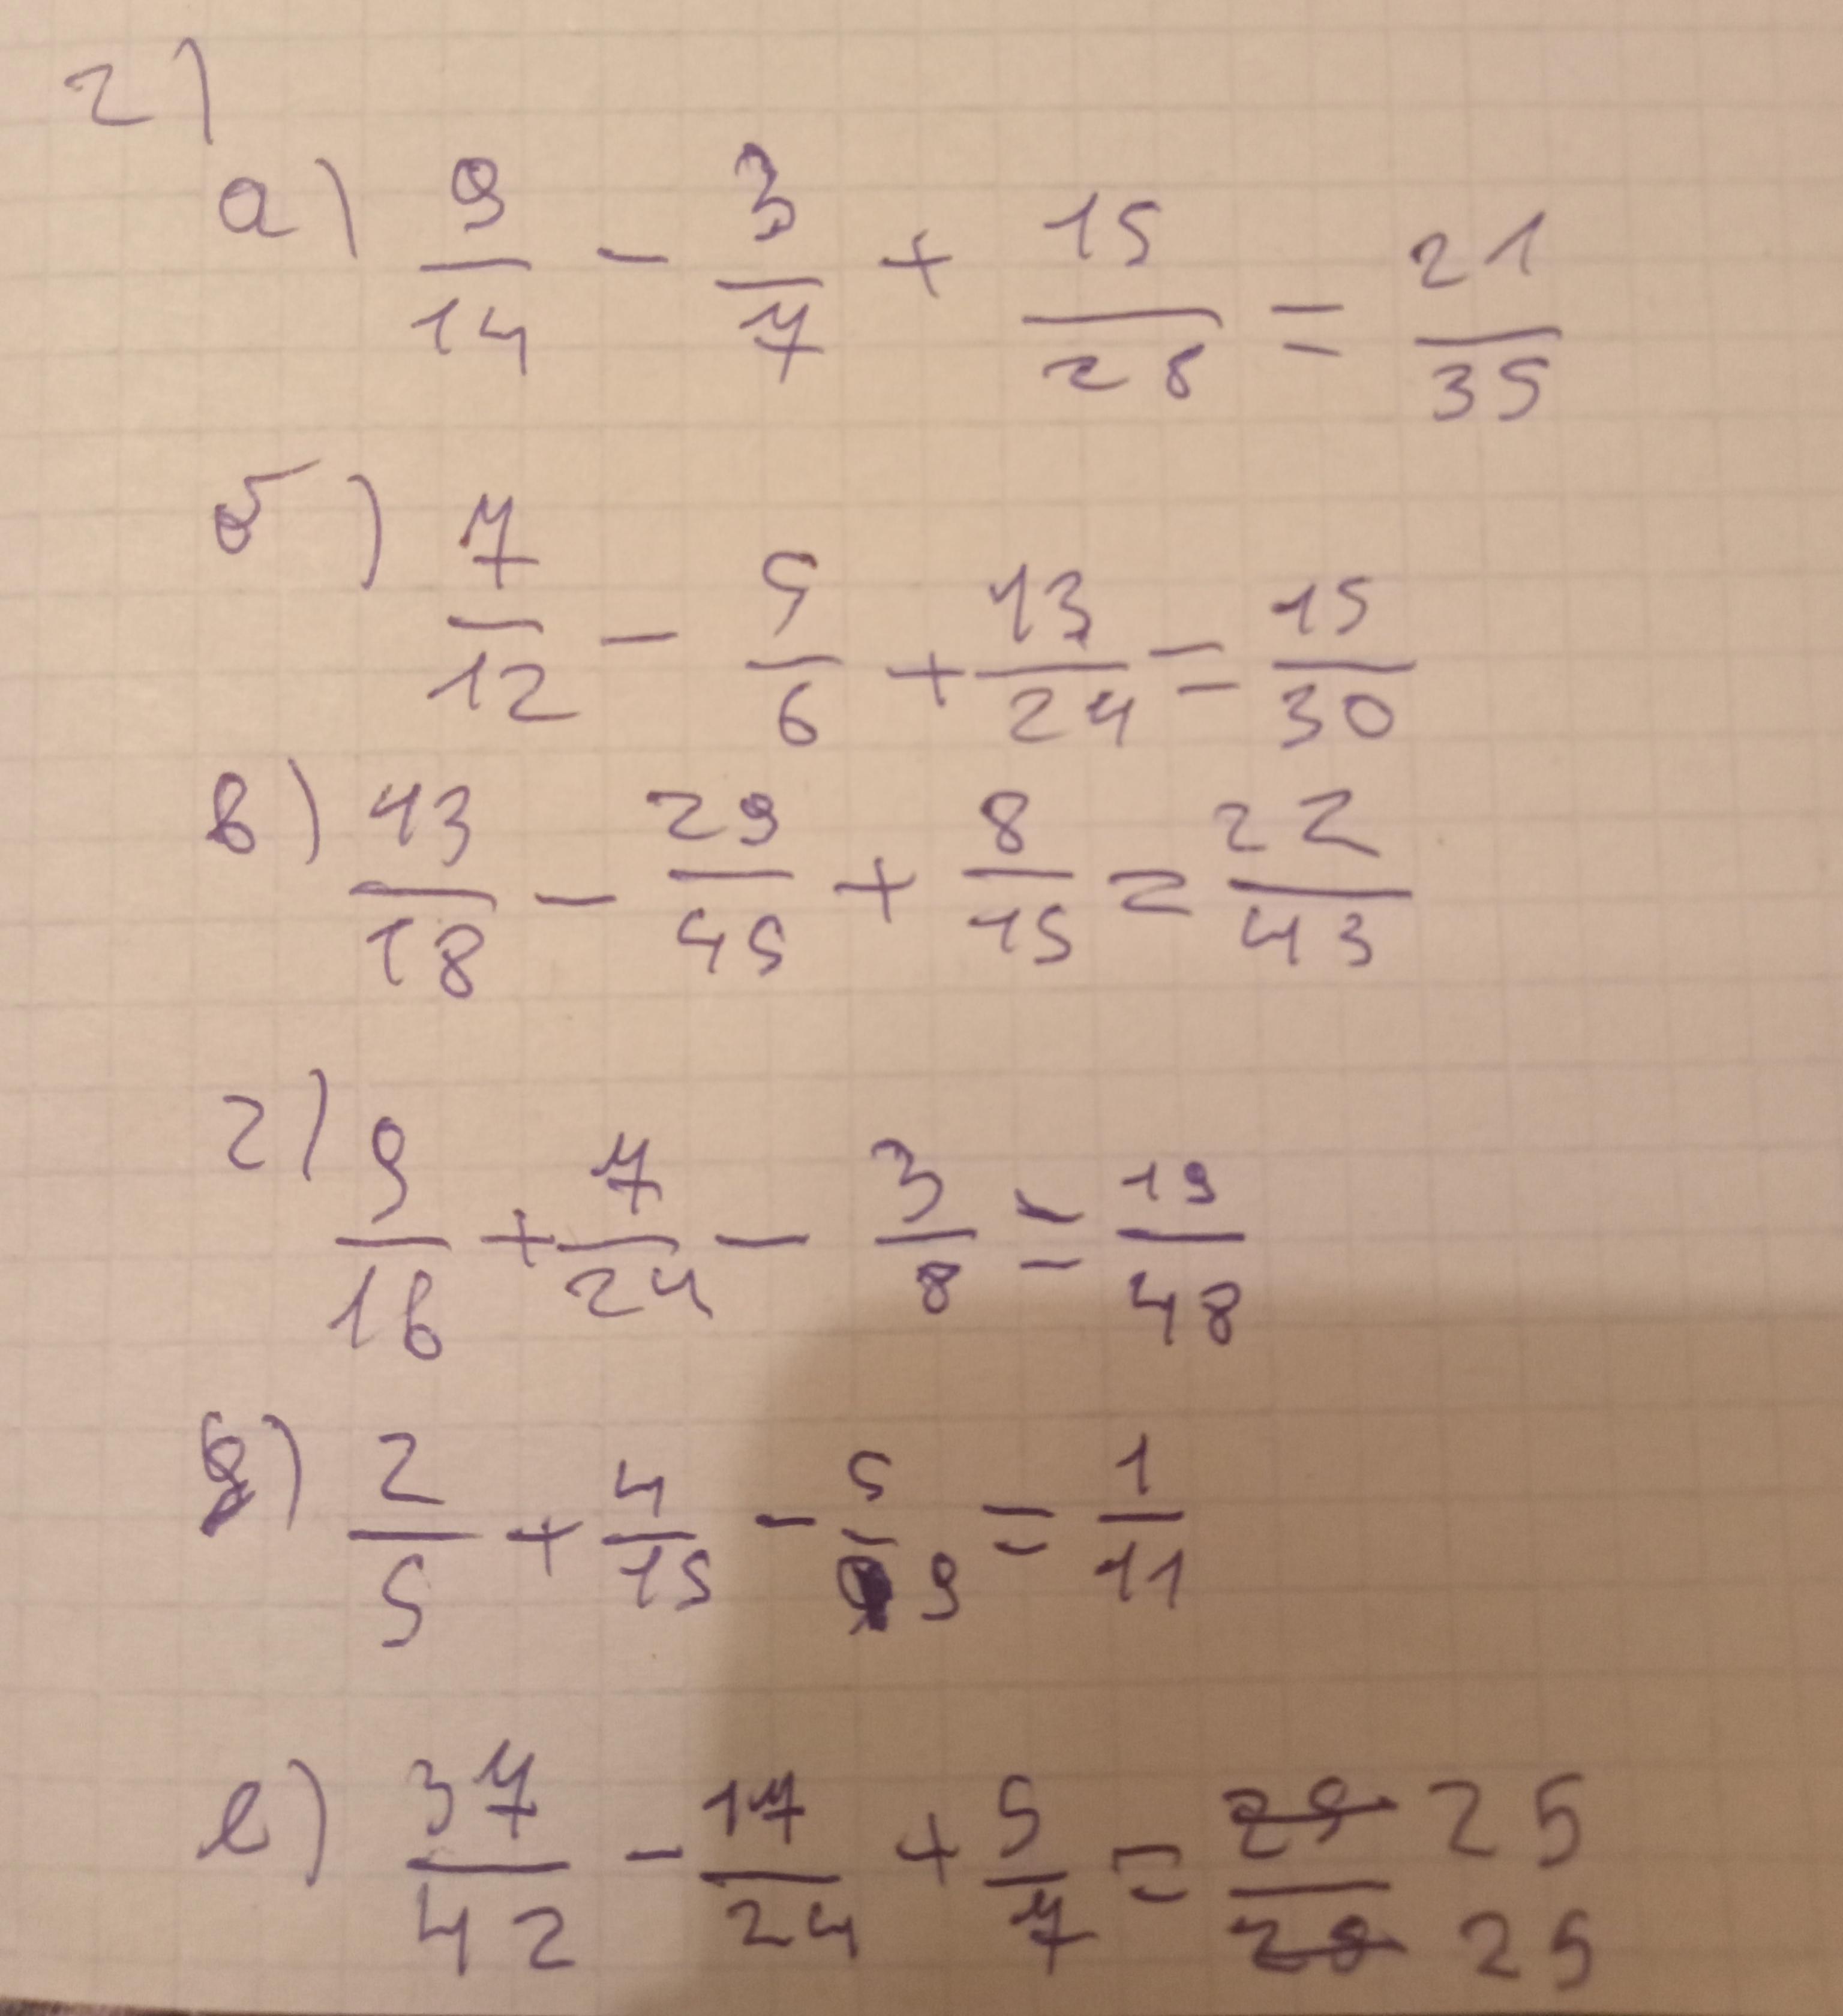 2)
а) 9/14 - 3/7 + 15/28 = 21/35
б) 7/12 - 5/6 + 13/24 = 15/30
в) 13/18 - 29/45 + 8/15 = 22/43
г) 9/16 + 7/24 - 3/8 = 19/48
д) 2/5 + 4/15 - 5/9 = 1/11
е) 37/42 - 17/24 + 5/7 = 25/25